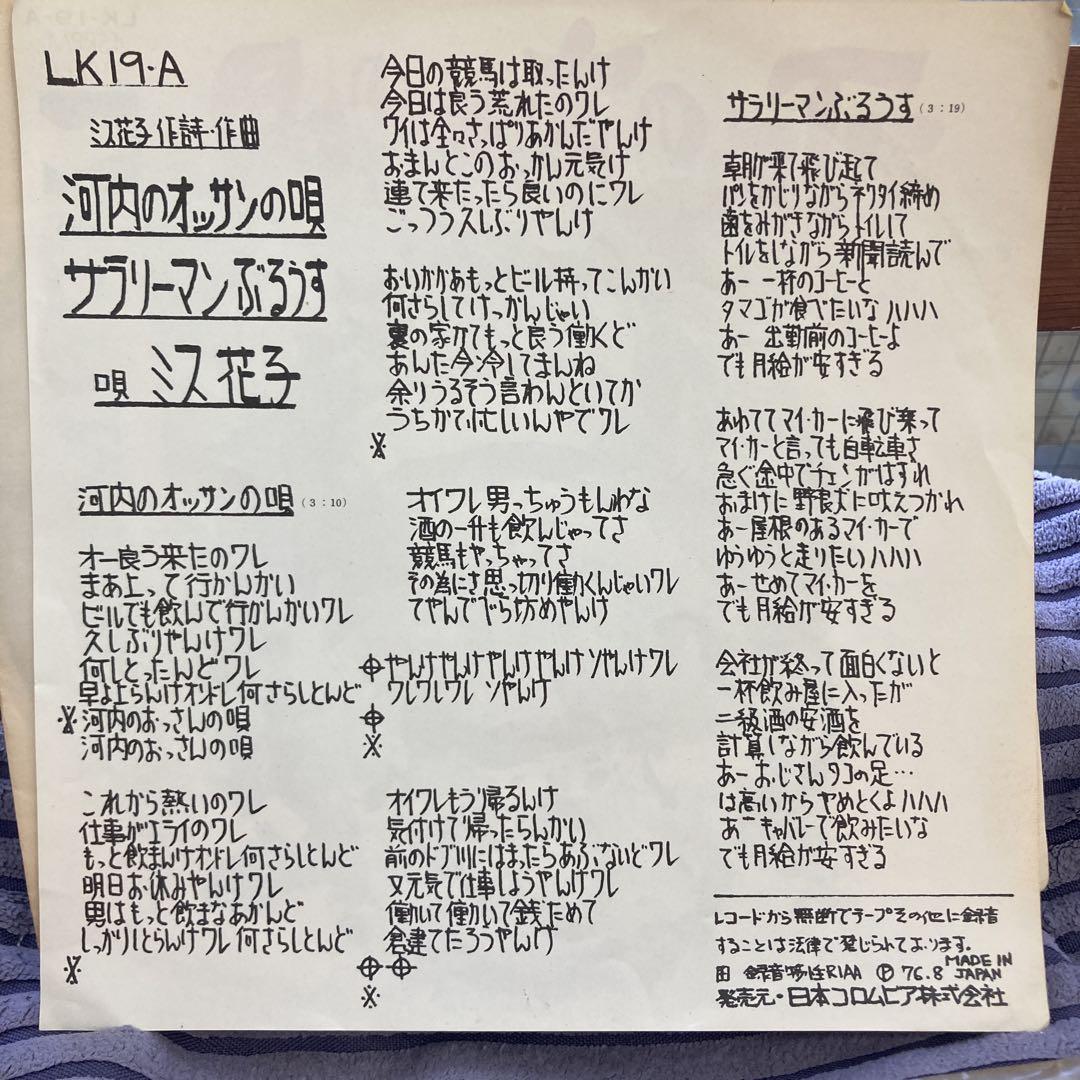 LK19・A
ミス花子 作詩・作曲
河内のオッサンの唄
サラリーマンぶるうす
唄 ミス花子
河内のオッサンの唄 (3:10)
オー良う来たのワレ
まあ上って行かんかい
ビールでも飲んで行かんかいワレ
久しぶりやんけワレ
何しとったんどワレ
早よ上らんけオンドレ何さらしとんど
河内のおっさんの唄
河内のおっさんの唄
これから熱いのワレ
仕事がエライのワレ
もっと飲まんけオンドレ何さらしとんど
明日お休みやんけワレ
男はもっと飲まなあかんど
しっかりしとらんけワレ何さらしとんど
今日の競馬は取ったんけ
今日は良う荒れたのワレ
ワイは全々さっぱりあかんだやんけ
おまんとこのおっかん元気け
連て来たったら良いのにワレ
ごっつう久しぶりやんけ
おいかかあもっとビール持ってこんかい
何さらしてけっかんじゃい
裏の家かてもっと良う働くど
あんた今冷してまんね
余りうるそう言わんといてか
うちかて忙しいんやでワレ
オイワレ男っちゅうもんわな
酒の一升も飲んじゃってさ
競馬もやっちゃってさ
その為にさ思っ切り働くんじゃいワレ
てやんでべら坊めやんけ
やんけやんけやんけやんけソやんけワレ
ワレワレワレ ソやんけ
オイワレもう帰るんけ
気付けて帰ったらんかい
前のドブ川にはまったらあぶないどワレ
又元気で仕事しようやんけワレ
働いて働いて銭ためて
倉建てたろうやんけ
サラリーマンぶるうす (3:19)
朝が来て飛び起て
パンをかじりながらネクタイ締め
歯をみがきながらトイレいて
トイレをしながら新聞読んで
あー 一杯のコーヒーと
タマゴが食べたいなハハハ
あー 出勤前のコーヒーよ
でも月給が安すぎる
あわててマイ・カーに飛び乗って
マイ・カーと言っても自転車さ
急ぐ途中でチェンがはずれ
おまけに野良犬に吠えつかれ
あー屋根のあるマイ・カーで
ゆうゆうと走りたいハハハ
あーせめてマイ・カーを
でも月給が安すぎる
会社が終って面白くないと
一杯飲み屋に入ったが
二級酒の安酒を
計算しながら飲んでいる
あーおじさんタコの足…
は高いからやめとくよハハハ
あーキャバレーで飲みたいな
でも月給が安すぎる
レコードから無断でテープその他に録音
することは法律で禁じられております。
録音特性RIAA Ⓟ 76.8 MADE IN JAPAN
発売元・日本コロムビア株式会社